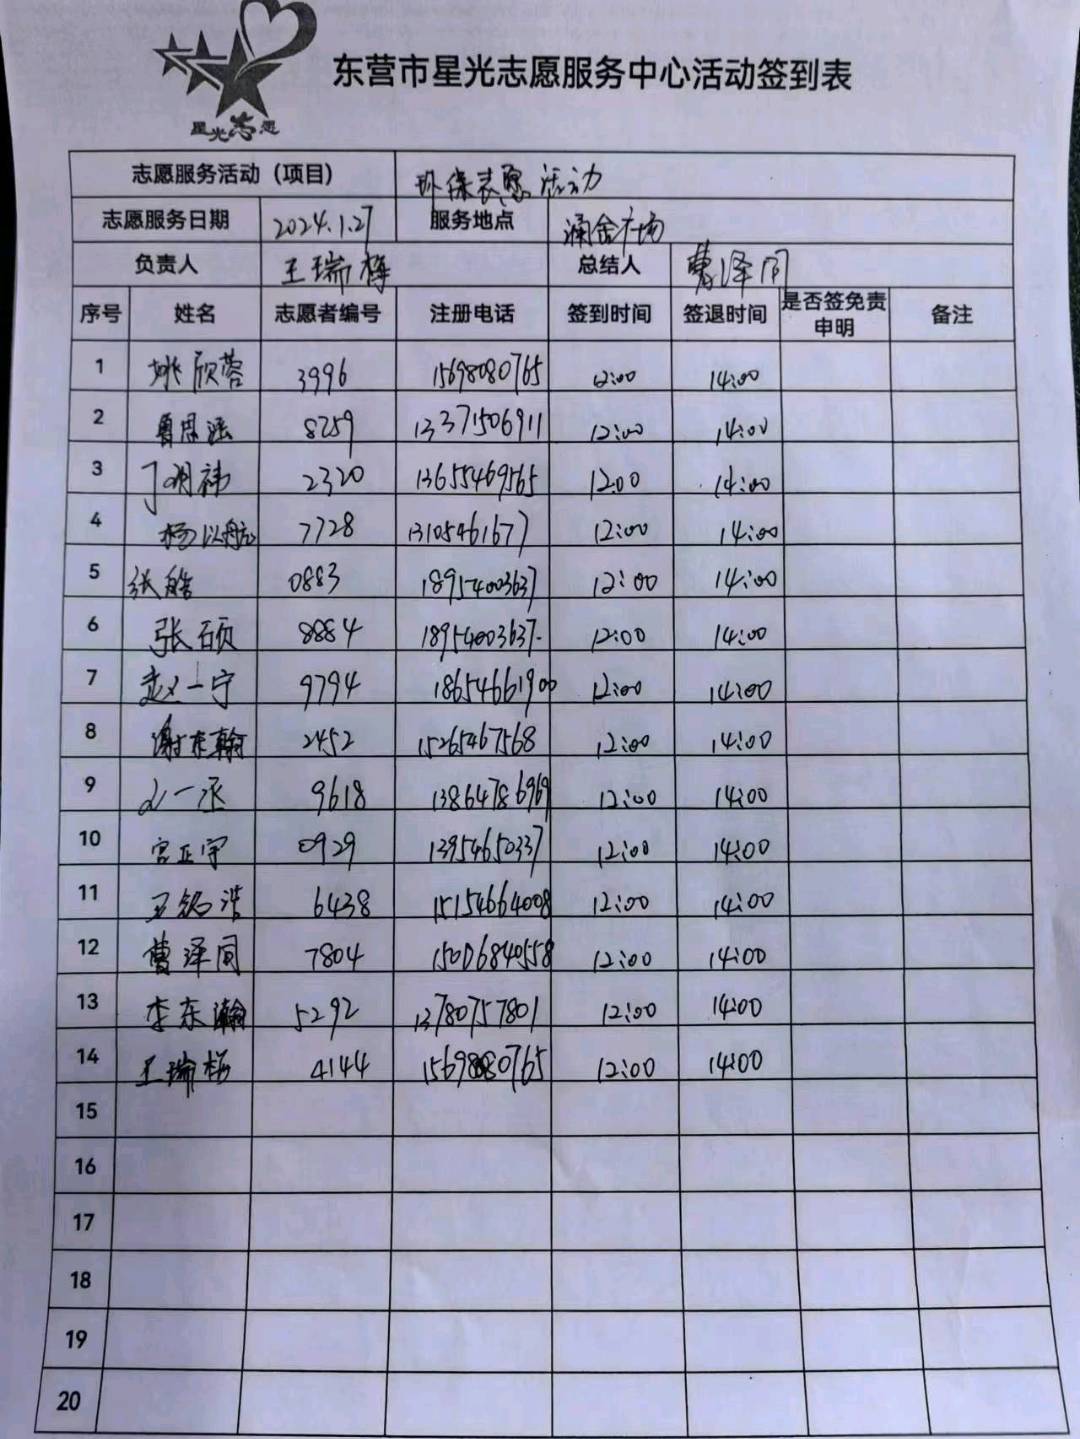 星光志愿
东营市星光志愿服务中心活动签到表
志愿服务活动（项目） 环保志愿活动
志愿服务日期 2024.1.27 服务地点 涌金广场
负责人 王瑞梅 总结人 曹泽同
序号 姓名 志愿者编号 注册电话 签到时间 签退时间 是否签免责申明 备注
1 姚欣蓉 3996 15698080765 12:00 14:00
2 8259 13371506911 12:00 14:00
3 丁明祎 2320 13655469565 12:00 14:00
4 杨以航 7728 13105461677 12:00 14:00
5 张皓 0883 18954003637 12:00 14:00
6 张硕 8884 18954003637 12:00 14:00
7 赵一宁 9794 18654661900 12:00 14:00
8 谢東翰 2452 15265467568 12:00 14:00
9 一丞 9618 13864786969 12:00 14:00
10 宫正宇 0929 13954650337 12:00 14:00
11 王铭浩 6438 15154664008 12:00 14:00
12 曹泽同 7804 15006840558 12:00 14:00
13 李东瀚 5292 13780757801 12:00 14:00
14 王瑞梅 4144 15698080765 12:00 14:00
15
16
17
18
19
20